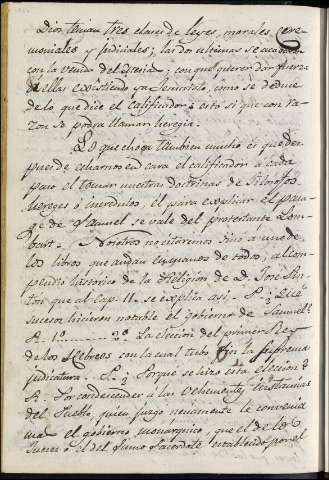 Dios tenian tres clases de leyes, morales, cere-
moniales y judiciales; las dos ultimas se acabaron
con la venida del Mesias; con que querer dar fuerza
à ellas existiendo ya Jesucristo, como se deduce
de lo que dice el Calificador, esto si que con ra-
zon se podra llamar heregia.
Lo que choca tambien mucho es que des-
pues de echarnos en cara el calificador à cada
paso el tomar nuestras doctrinas de Filosofos
Hereges ó incredulos, el para explicar el pasa-
ge de Samuel se vale del protestante Lom-
bart. Nosotros no citaremos sino a uno de
los libros que andan en manos de todos, al Com-
pendio historico de la Religion de D. José Pin-
ton que al Cap. 11. se explica asi. P. ¿Que
sucesos hicieron notable el gobierno de Samuel?
R. 1º ........ 2º La eleccion del primer Rey
de los Hebreos con la cual tubo fin la suprema
judicatura. P. ¿Porque se hizo esta eleccion?
R. Por condescender à las vehementes instancias
del Pueblo, quien juzgo neciamente le convenia
mas el gobierno monarquico, que el de los
Jueces ó el del sumo Sacerdote establecido por el